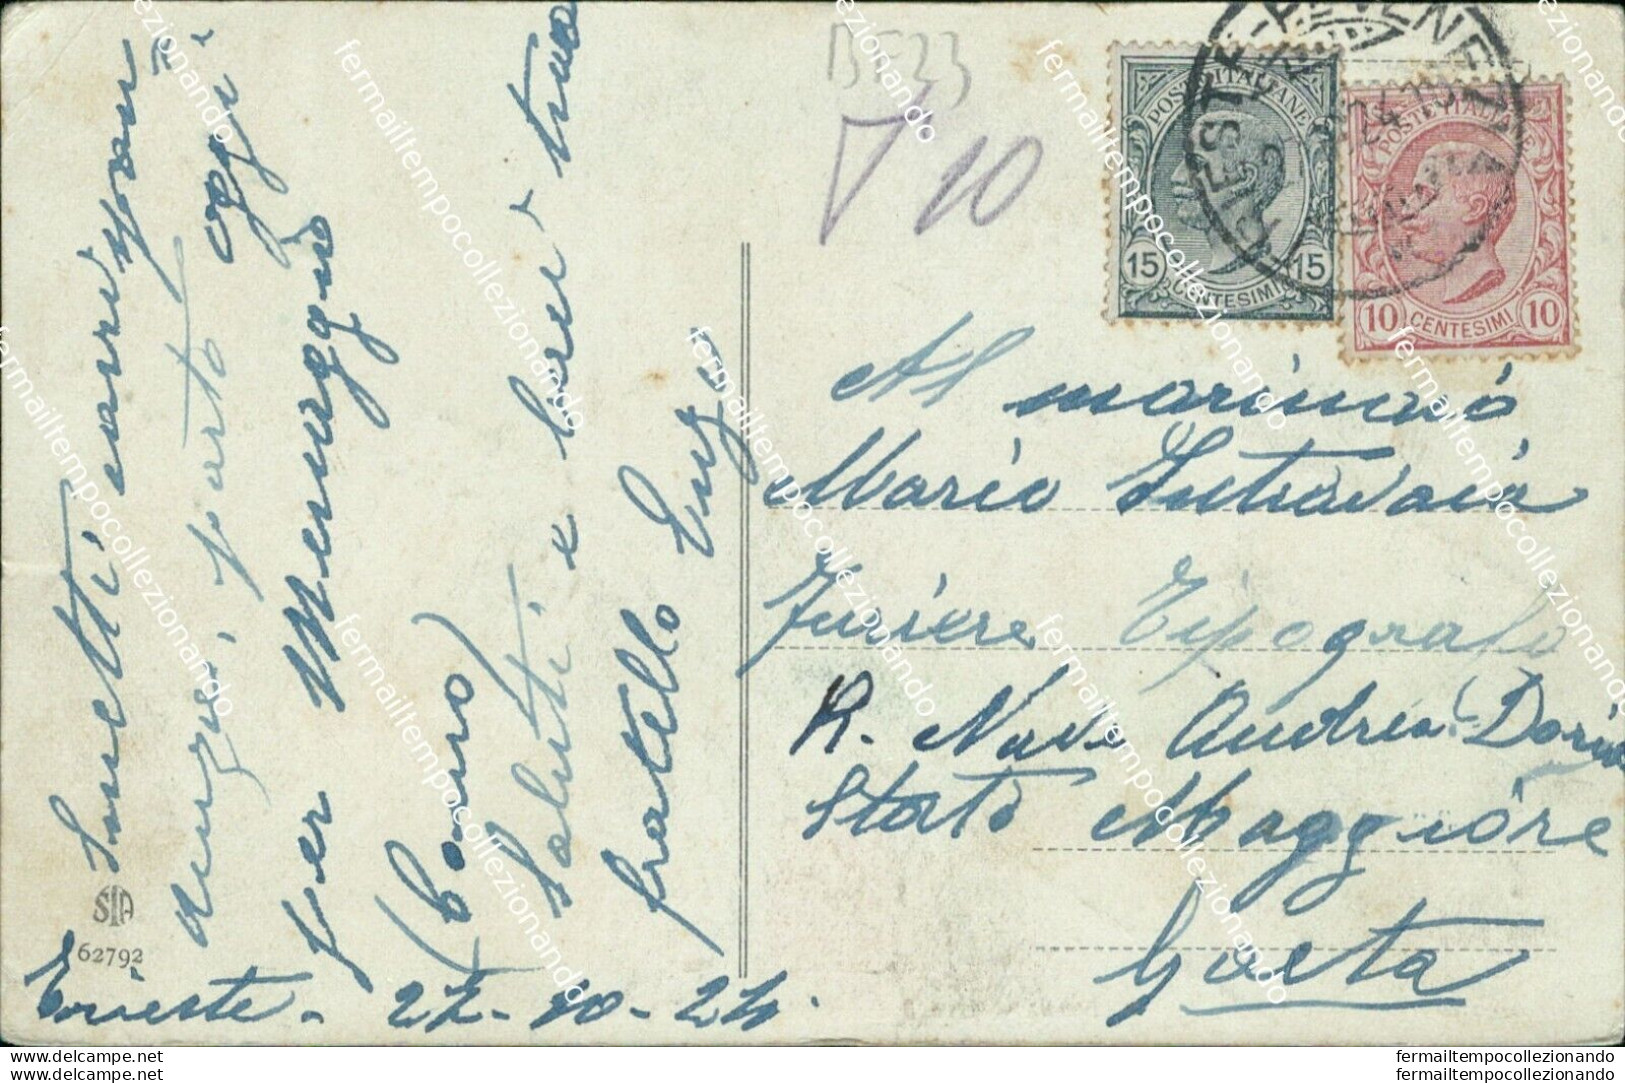 BF33
T 10
POSTE ITALIANE
15 15
CENTESIMI
POSTE ITALIANE
10 10
CENTESIMI
Al marinaio
Mario Intravaia
Furiere Tipografo
R. Nave Andrea Doria
Stato Maggiore
Gaeta
anzi, parto oggi
per Menaggio
(Como)
Saluti e baci tuo
fratello Enzo
SIA
62792
Trieste - 22-10-24.
www.delcampe.net
fermailtempocollezionando
fermailtempocollezionando